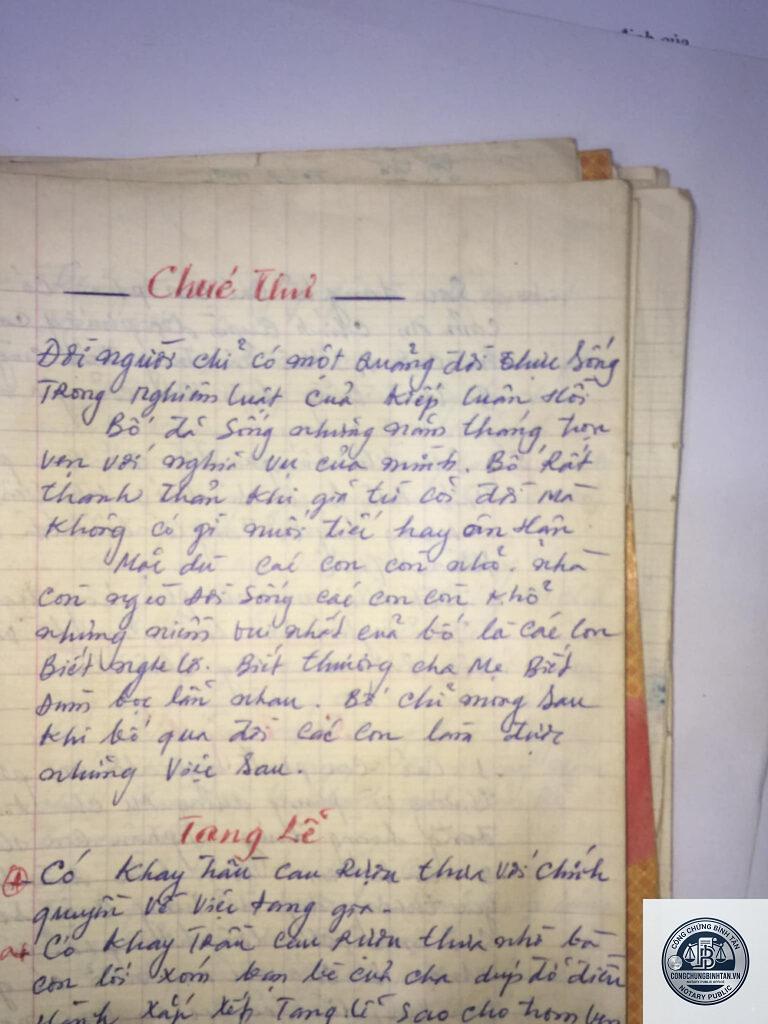 Chúc Thư
Đời người chỉ có một quảng đời thực sống
Trong nghiêm luật của kiếp luân hồi
Bố đã sống những năm tháng trọn
vẹn với nghĩa vụ của mình. Bố Rất
thanh thản khi giã từ cõi đời mà
không có gì nuối tiếc hay ân hận
Mặc dù các con còn nhỏ. nhà
còn nghèo đời sống các con còn khổ
nhưng niềm vui nhất của bố là các con
Biết nghe lời. Biết thương cha Mẹ Biết
Đùm bọc lẫn nhau. Bố chỉ mong sau
khi bố qua đời các con làm được
những việc sau.
Tang Lễ
Có khay Trầu cau Rượu thưa với chính
quyền về việc tang gia.
a+ Có khay Trầu cau Rượu thưa nhờ bà
con lối xóm bạn bè của cha dúp đỡ điều
hành xắp xếp Tang lễ sao cho trọn vẹn
CÔNG CHỨNG BÌNH TÂN
CONGCHUNGBINHTAN.VN
NOTARY PUBLIC OFFICE
NOTARY PUBLIC